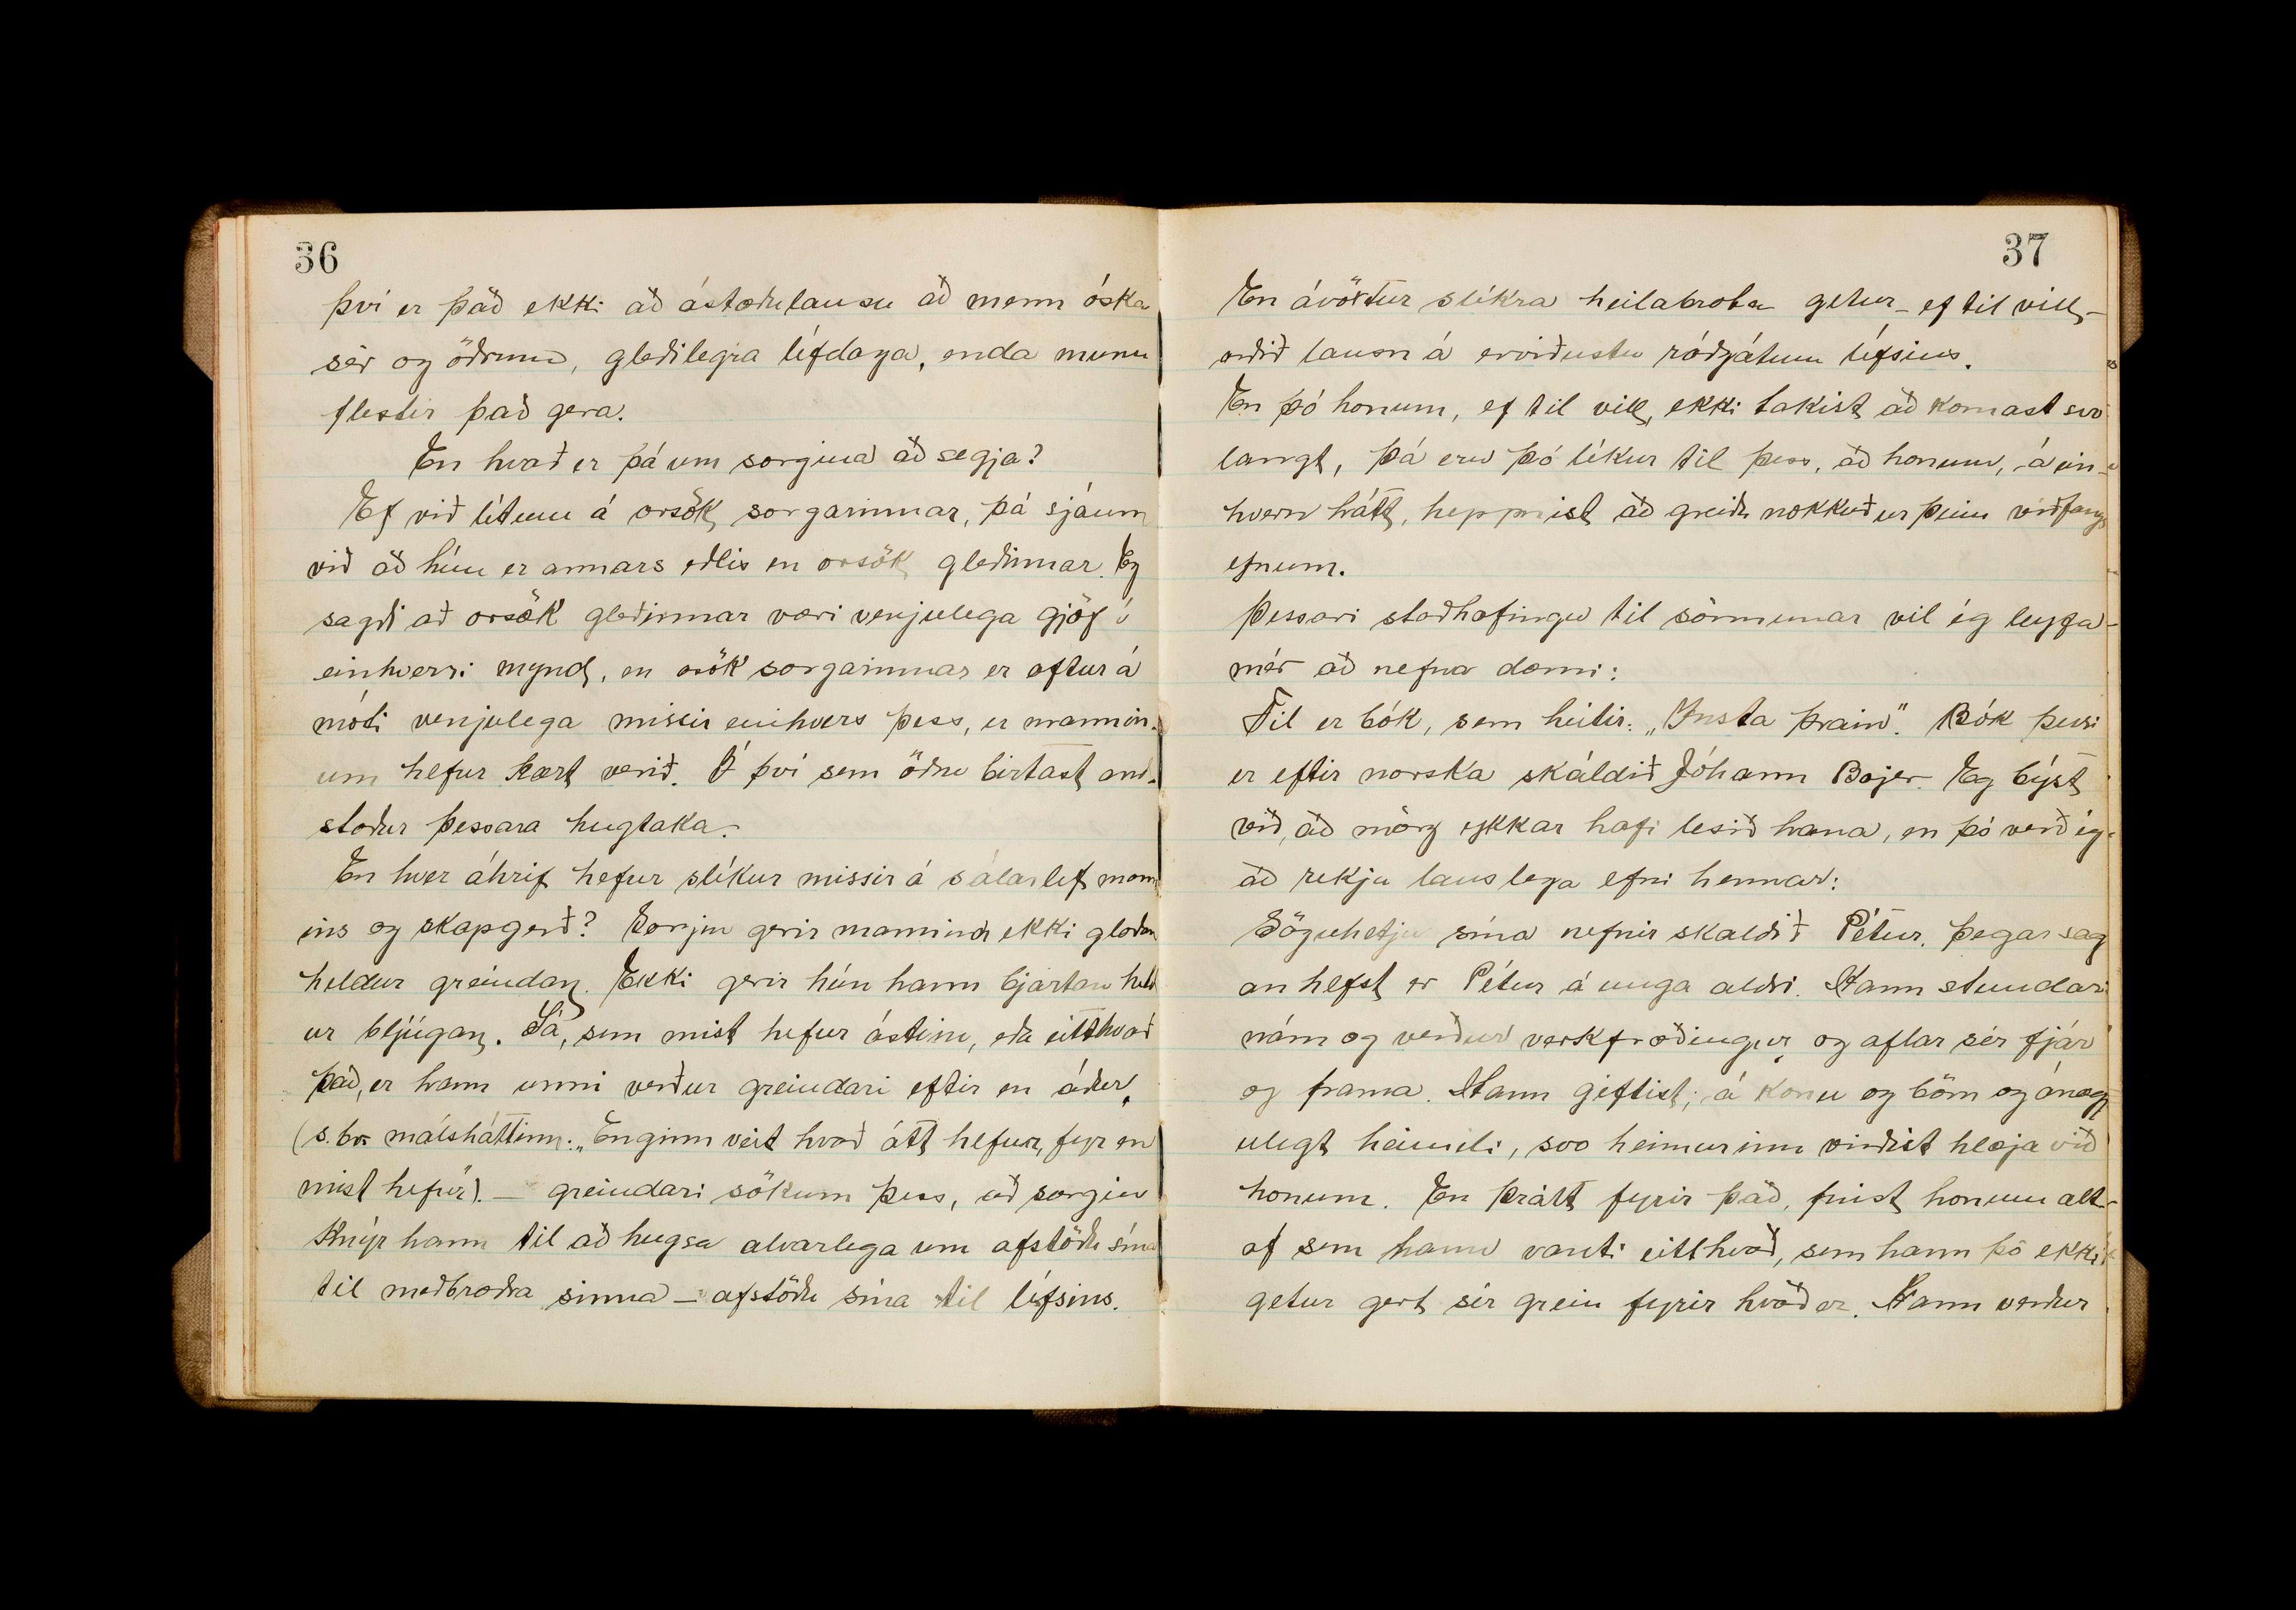 36
því er það ekki að ástæðulausu að menn óska
sér og öðrum, gleðilegra lífdaga, enda munu
flestir það gera.
En hvað er þá um sorgina að segja?
Ef við lítum á orsök sorgarinnar, þá sjáum
við að hún er annars eðlis en orsök gleðinnar. Eg
sagði að orsök gleðinnar væri venjulega gjöf í
einhverri mynd, en orsök sorgarinnar er aftur á
móti venjulega missir einhvers þess, er mannin-
um hefur kært verið. Í því sem öðru birtast and-
stæður þessara hugtaka.
En hver áhrif hefur slíkur missir á sálarlíf mann
ins og skapgerð? Sorgin gerir manninn ekki glaðan
heldur greindan. Ekki gerir hún hann bjartan held
ur bljúgan. Sá, sem mist hefur ástina, eða eitthvað
það, er hann unni verður greindari eftir en áður,
(s.br. málsháttinn: „Enginn veit hvað átt hefur, fyr en
mist hefur"). — greindari sökum þess, að sorgin
knýr hann til að hugsa alvarlega um afstöðu sína
til meðbræðra sinna — afstöðu sína til lífsins.
37
En ávöxtur slíkra heilabrota getur – ef til vill –
orðið lausn á erviðustu ráðgátum lífsins.
En þó honum, ef til vill, ekki takist að komast svo
langt, þá eru þó líkur til þess, að honum, á ein-
hvern hátt, heppnist að greiða nokkuð úr þeim viðfangs
efnum.
Þessari staðhæfingu til sönnunar vil ég leyfa
mér að nefna dæmi:
Til er bók, sem heitir: „Insta þráin". Bók þessi
er eftir norska skáldið Jóhann Bojer. Eg býst
við, að mörg ykkar hafi lesið hana, en þó verð ég
að rekja lauslega efni hennar:
Söguhetju sína nefnir skáldið Pétur. Þegar sag
an hefst er Pétur á unga aldri. Hann stundar
nám og verður verkfræðingur, og aflar sér fjár
og frama. Hann giftist; á konu og börn og ánægj
ulegt heimili, svo heimurinn virðist hlæja við
honum. En þrátt fyrir það, finst honum alt-
af sem hann vanti eitthvað, sem hann þó ekki
getur gert sér grein fyrir hvað er. Hann verður